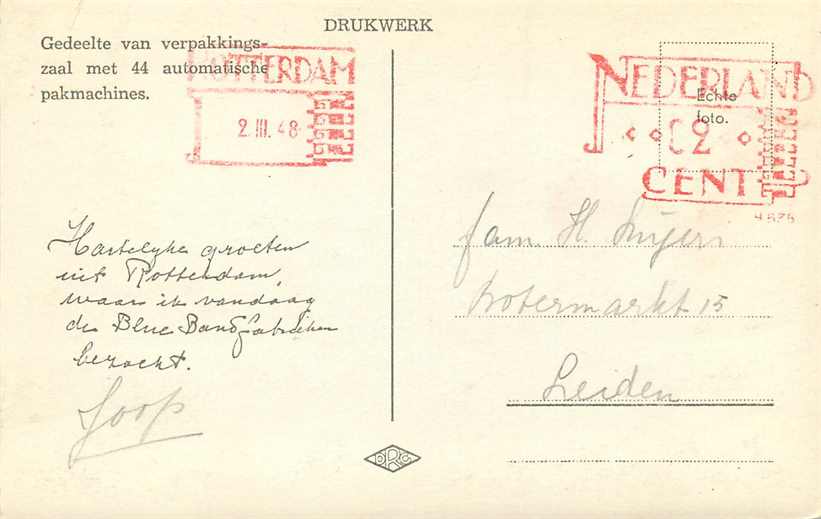 DRUKWERK
Gedeelte van verpakkings-
zaal met 44 automatische
pakmachines.
ROTTERDAM
2.III.48
NEDERLAND
Echte
foto.
02
CENT
Hartelijke groeten
uit Rotterdam,
waar ik vandaag
de Blue Band fabrieken
bezocht.
Joop
fam. H.
Botermarkt 15
Leiden
DRC